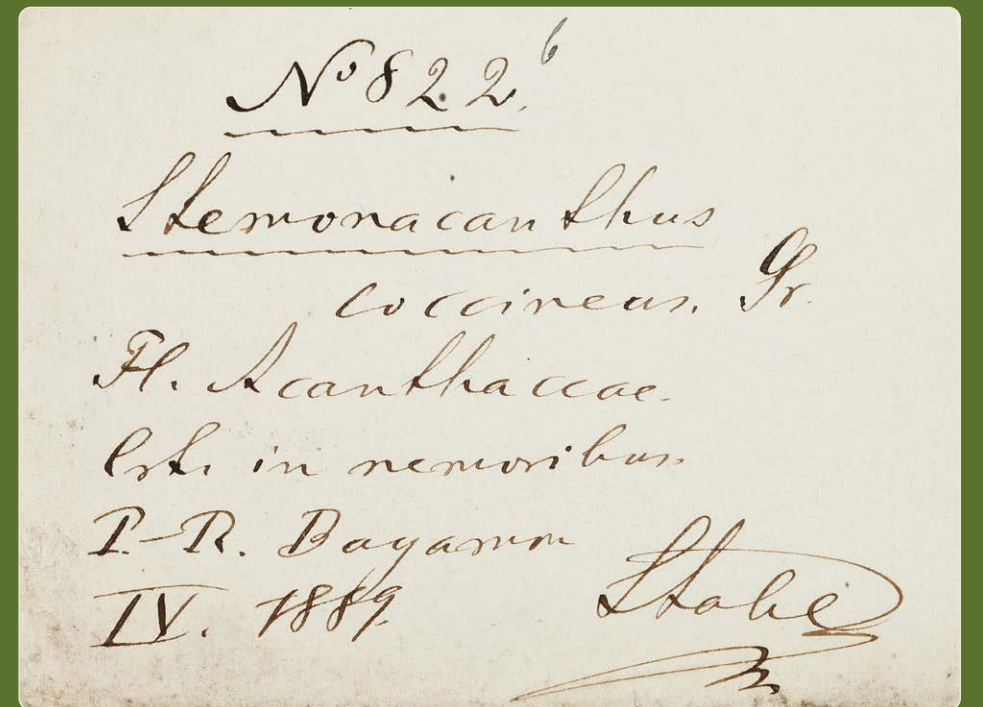 No 822 b
Stemonacanthus
coccineus. Gr.
Fl. Acanthaceae.
in nemoribus.
P.-R. Bayamon
IV. 1889.
Stahl